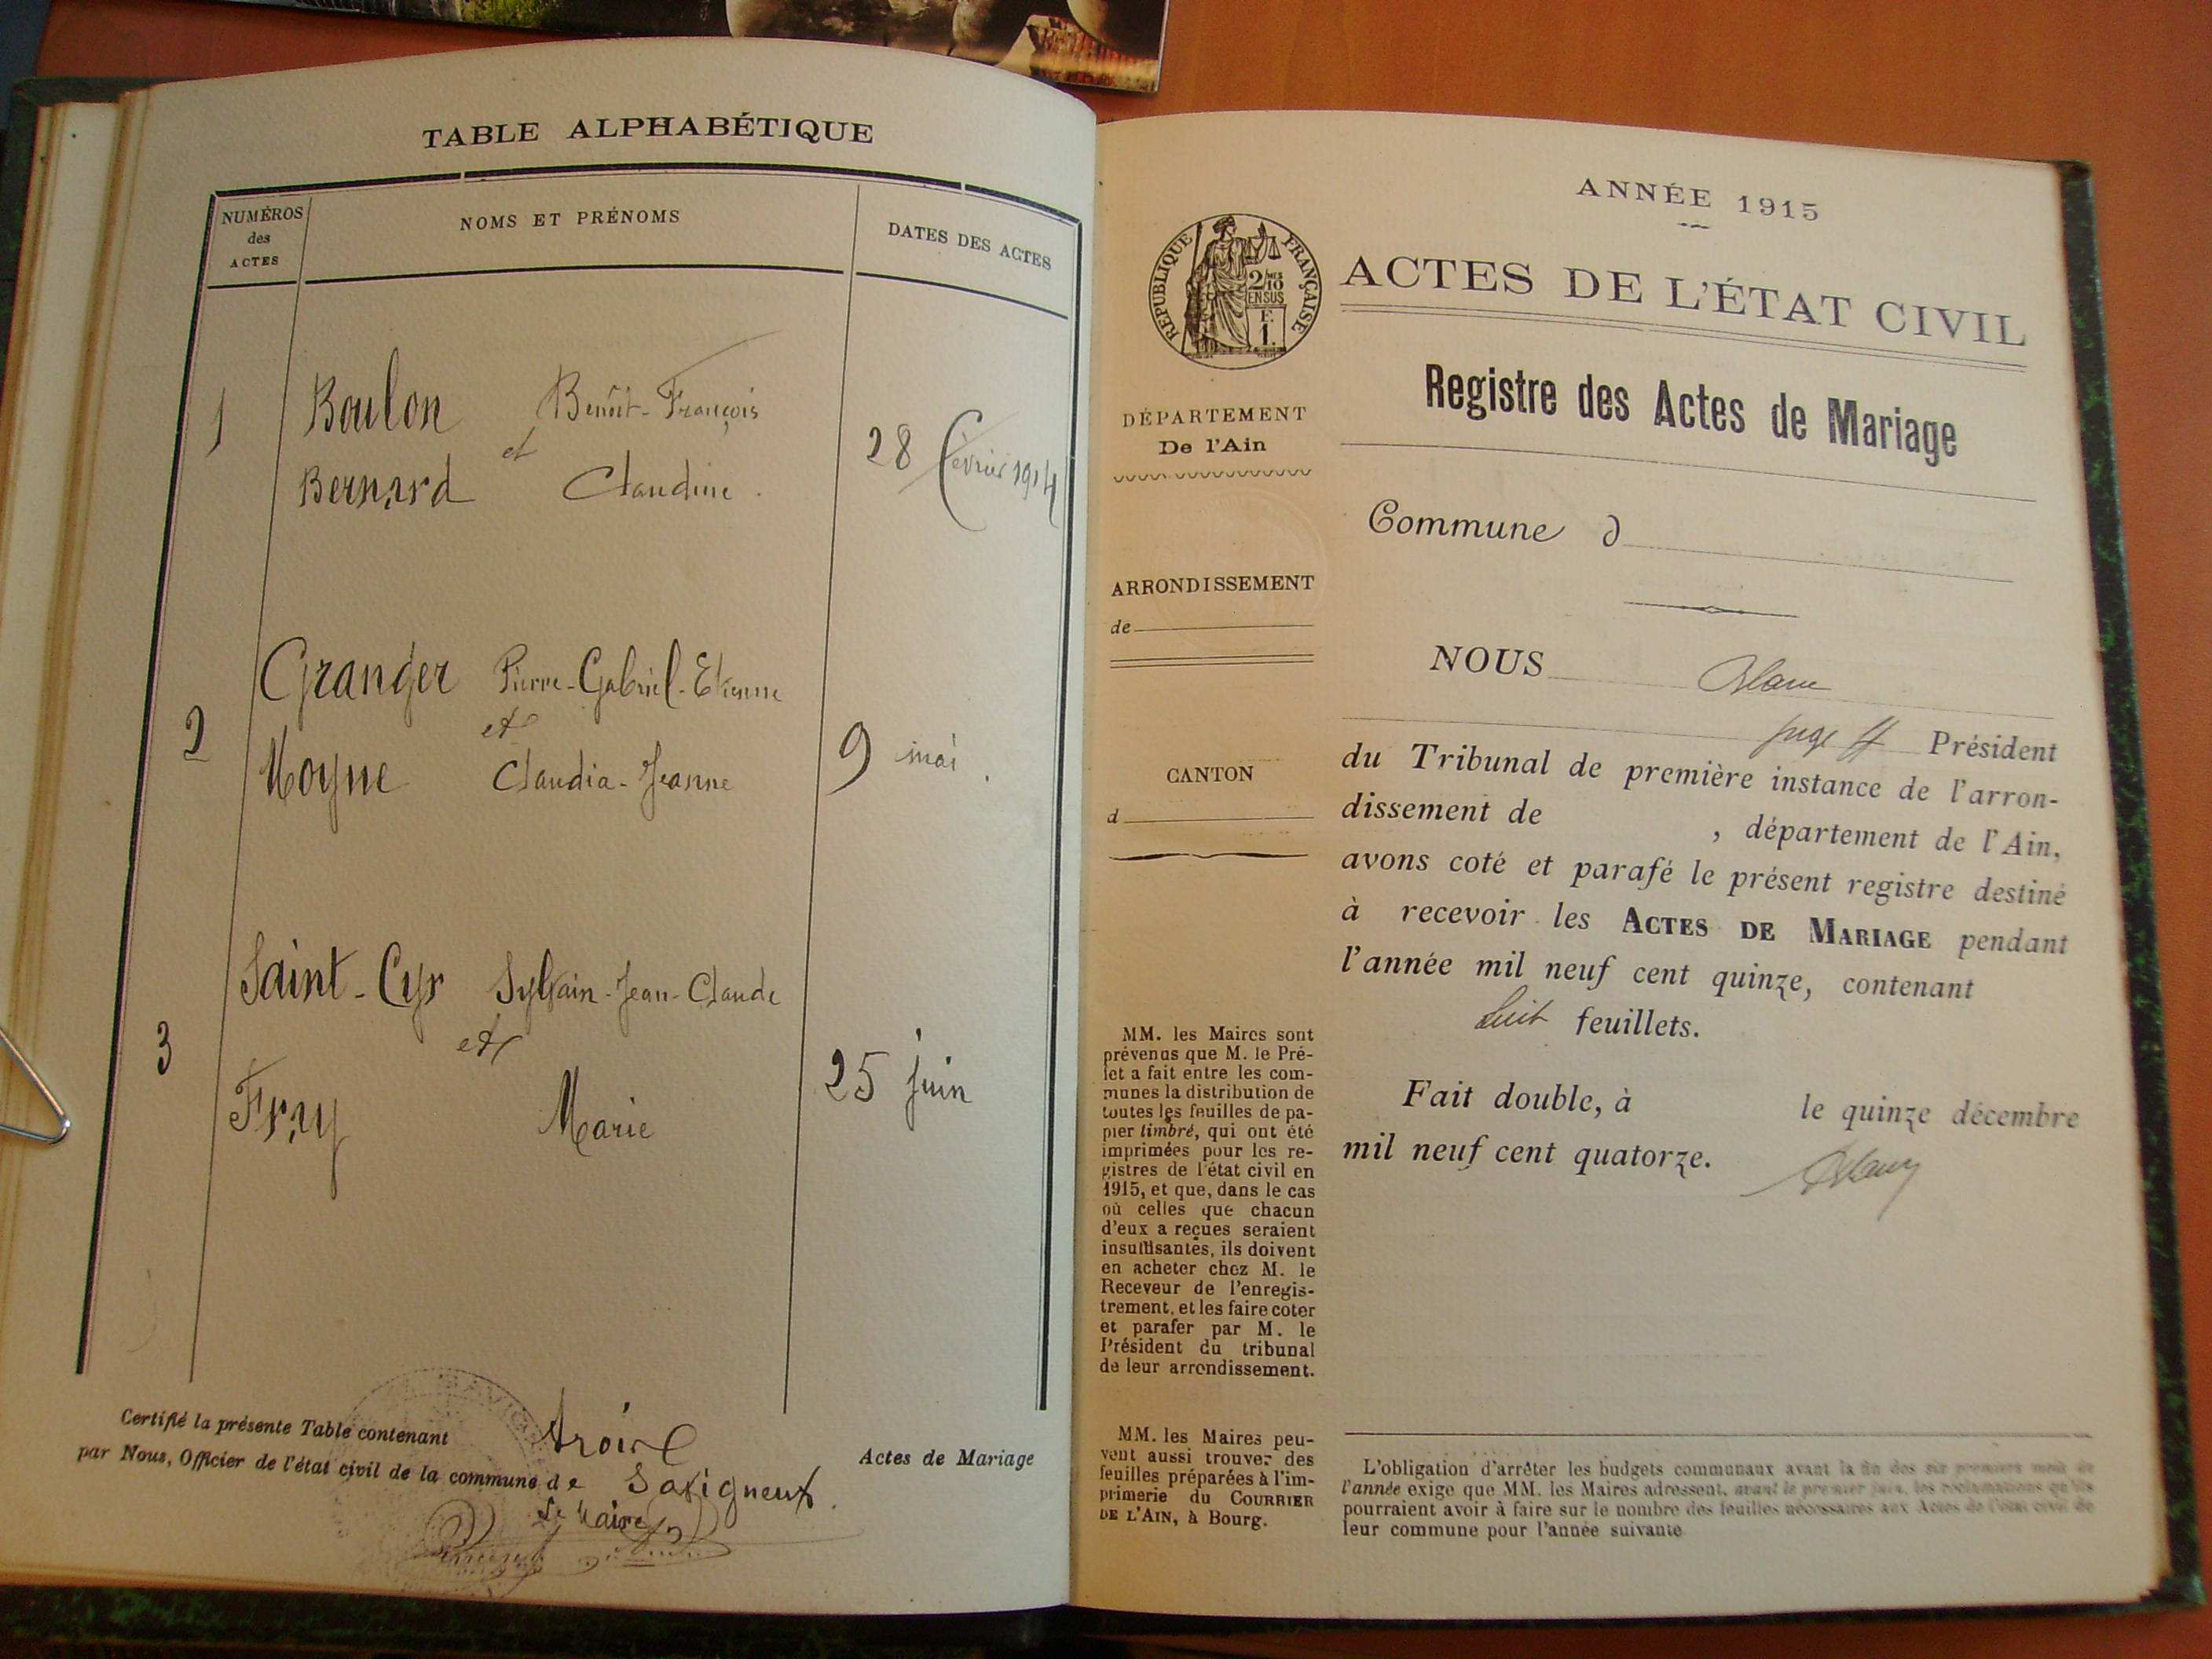 TABLE ALPHABÉTIQUE
NUMÉROS
des
ACTES
NOMS ET PRÉNOMS
DATES DES ACTES
1
Boulon Benoît-François
et
Bernard Claudine
28 février 1914
2
Granger Pierre-Gabriel-Etienne
et
Moyne Claudia-Jeanne
9 mai
3
Saint-Cyr Sylvain-Jean-Claude
et
Fray Marie
25 juin
Certifié la présente Table contenant trois Actes de Mariage
par Nous, Officier de l'état civil de la commune de Savigneux.
Le Maire
ANNÉE 1915
ACTES DE L'ÉTAT CIVIL
RÉPUBLIQUE FRANÇAISE
2/10
MES
EN SUS
F.
1.
Registre des Actes de Mariage
DÉPARTEMENT
De l'Ain
Commune d
ARRONDISSEMENT
de
NOUS
juge ff Président
du Tribunal de première instance de l'arron-
dissement de , département de l'Ain,
avons coté et parafé le présent registre destiné
à recevoir les ACTES DE MARIAGE pendant
l'année mil neuf cent quinze, contenant
huit feuillets.
Fait double, à le quinze décembre
mil neuf cent quatorze.
CANTON
d
MM. les Maires sont
prévenus que M. le Pré-
fet a fait entre les com-
munes la distribution de
toutes les feuilles de pa-
pier timbré, qui ont été
imprimées pour les re-
gistres de l'état civil en
1915, et que, dans le cas
où celles que chacun
d'eux a reçues seraient
insuffisantes, ils doivent
en acheter chez M. le
Receveur de l'enregis-
trement, et les faire coter
et parafer par M. le
Président du tribunal
de leur arrondissement.
MM. les Maires peu-
vent aussi trouver des
feuilles préparées à l'im-
primerie du COURRIER
DE L'AIN, à Bourg.
L'obligation d'arrêter les budgets communaux avant la fin des six premiers mois de
l'année exige que MM. les Maires adressent, avant le premier juin, les réclamations qu'ils
pourraient avoir à faire sur le nombre des feuilles nécessaires aux Actes de l'état civil de
leur commune pour l'année suivante